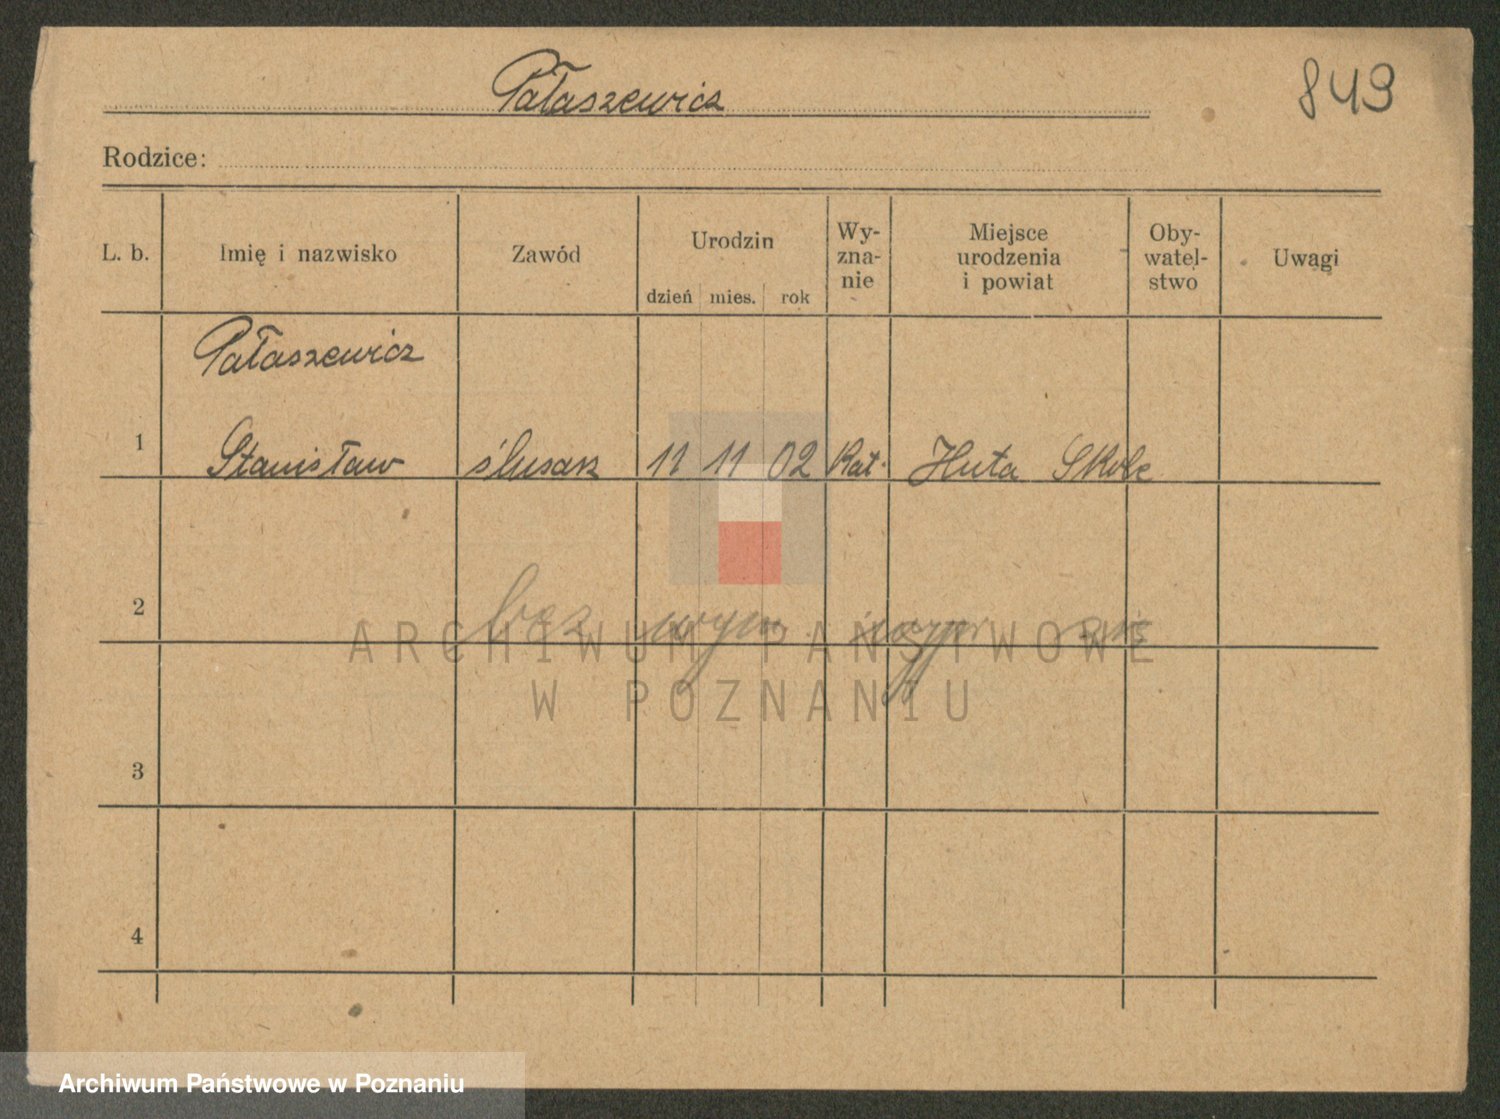 Pałaszewicz
849
Rodzice:
L. b. Imię i nazwisko Zawód Urodzin dzień mies. rok Wy-zna-nie Miejsce urodzenia i powiat Oby-watel-stwo Uwagi
Pałaszewicz
1 Stanisław ślusarz 11 11 02 Kat. Huta Skole
2 bez wym.
ARCHIWUM PAŃSTWOWE
W POZNANIU
3
4
Archiwum Państwowe w Poznaniu